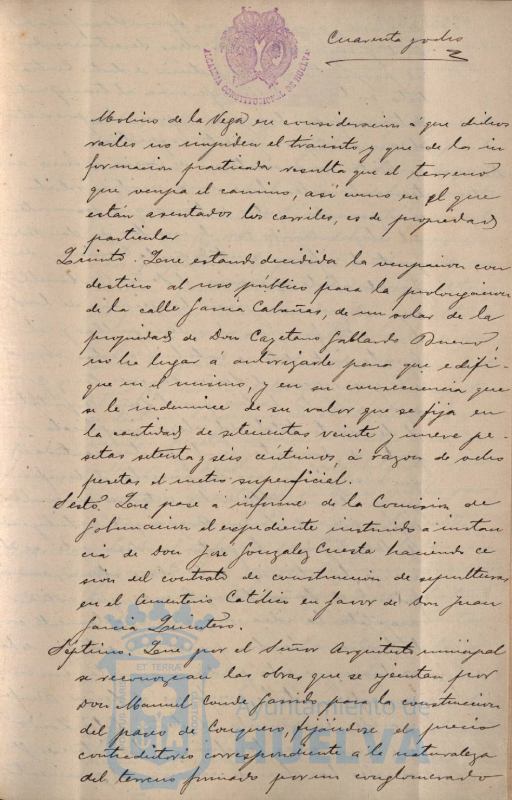 Cuarenta y ocho
ALCALDIA CONSTITUCIONAL DE HUELVA
Molino de la Vega en consideracion á que dichos
railes no impiden el tránsito, y que de la in
formacion practicada resulta que el terreno
que ocupa el camino, así como en el que
están asentados los carriles, es de propiedad
particular
Quinto. Que estando decidida la ocupacion con
destino al uso público para la prolongacion
de la calle Garcia Cabañas, de un solar de la
propiedad de Don Cayetano Gallardo Bueno,
no há lugar á autorizarle para que edifi-
que en el mismo, y en su consecuencia que
se le indemnice de su valor que se fija en
la cantidad de setecientas veinte y nueve pe-
setas setenta y seis céntimos, á razon de ocho
pesetas el metro superficial.
Sesto. Que pase á informe de la Comision de
Gobernacion el espediente instruido a instan
cia de Don José Gonzalez Cuesta haciendo ce
sion del contrato de construccion de sepulturas
en el Cementerio Católico en favor de Don Juan
Garcia Quintero.
Septimo. Que por el Señor Arquitecto municipal
se reconozcan las obras que se ejecutan por
Don Manuel Conde Garrido para la construccion
del paseo de Conquero, fijándose el precio
contradictorio correspondiente á la naturaleza
del terreno formado por un conglomerado
ET TERRAE
Ayuntamiento de
HUELVA